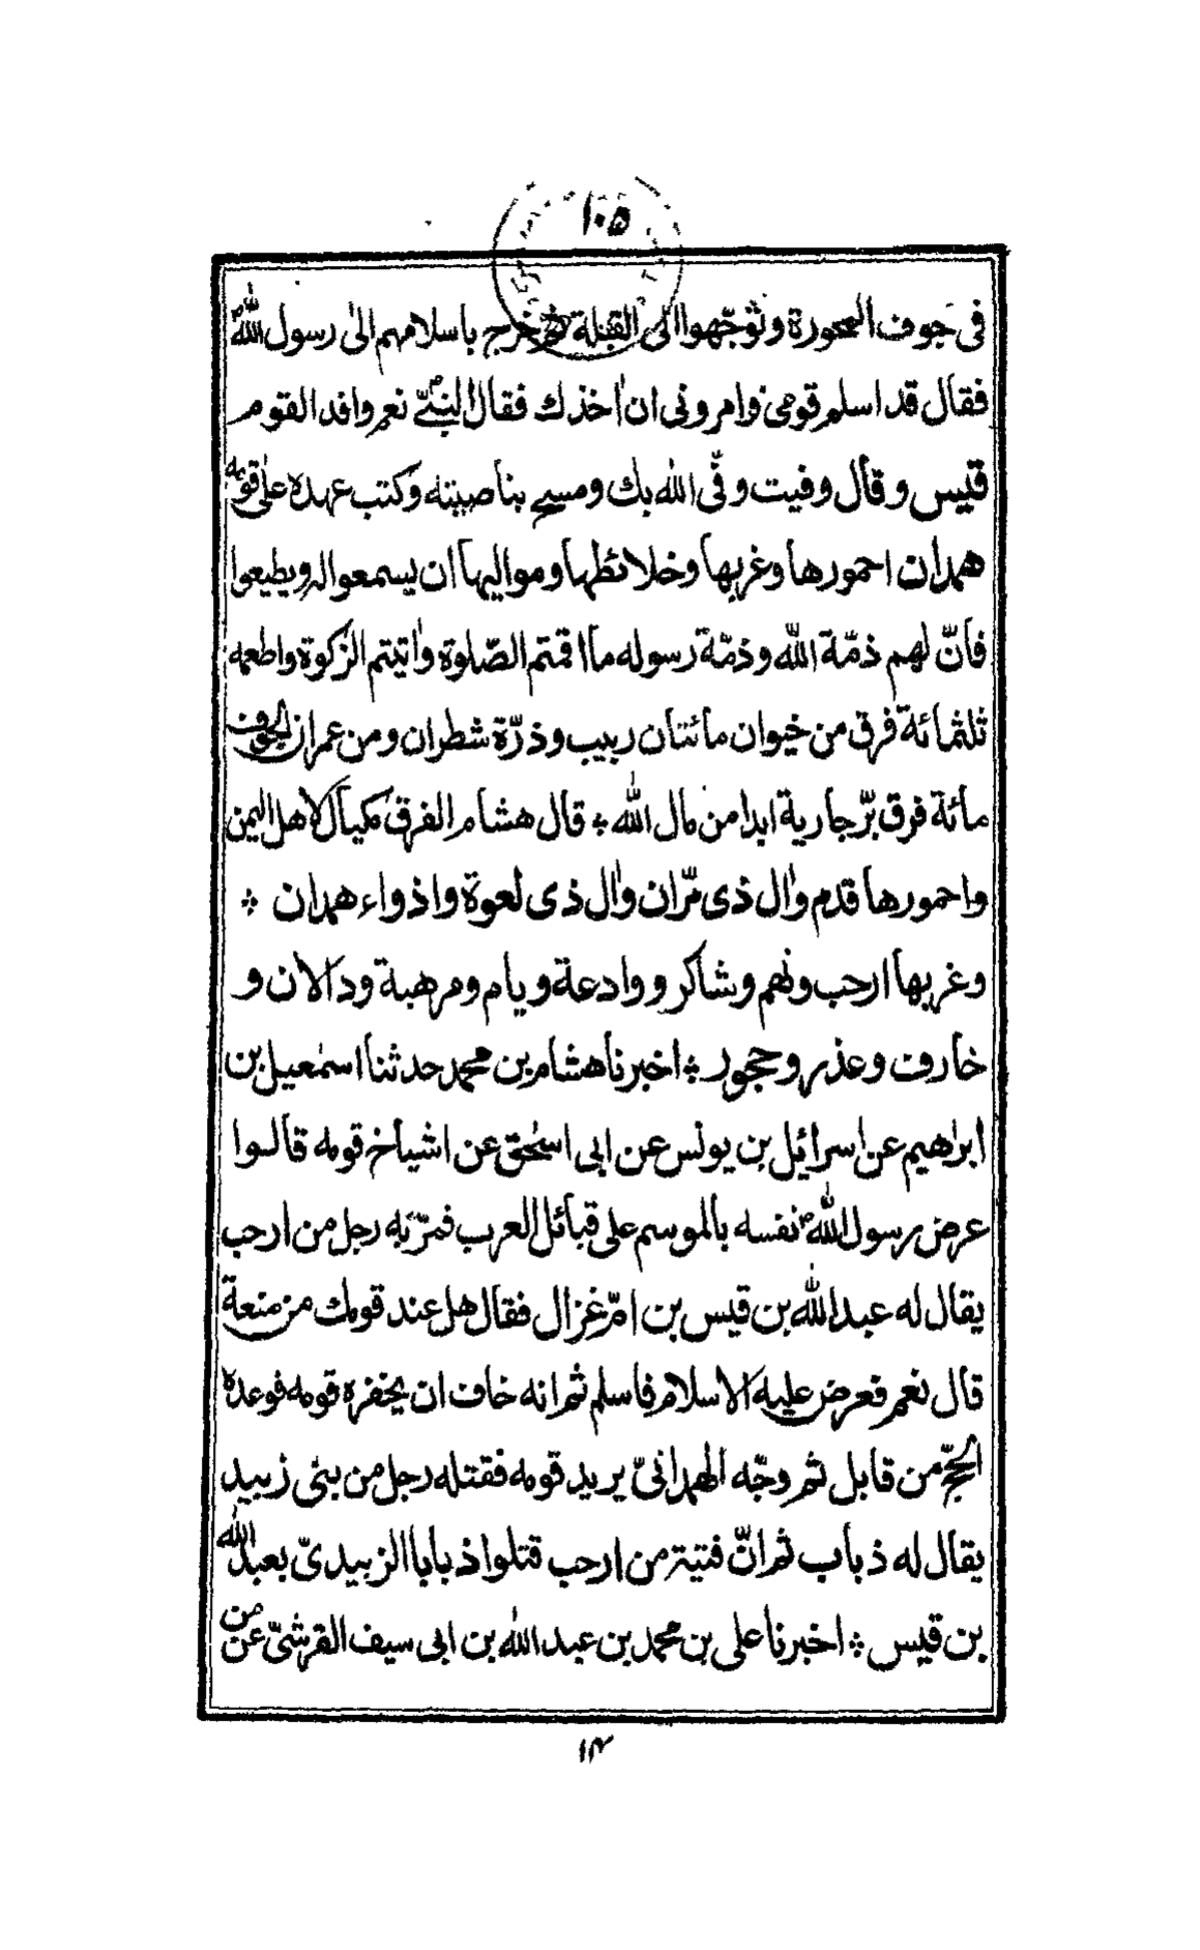 ١٠۵
فى جوف المحورة وتوجّهوا الى القبلة ثم خرج باسلامهم الىٰ رسول اللهؐ
فقال قد اسلم قومى وامرونى ان اٰخذك فقال النبىّؐ نعم وافد القوم
قيس وقال وفيت وفّى الله بك ومسح بناصيته وكتب عهده علىٰ قومه
همدان احمورها وغربها وخلائطها ومواليها ان يسمعوا له ويطيعوا
فانّ لهم ذمّة الله وذمّة رسوله ما اقمتم الصّلوة واٰتيتم الزكوة واطعمه
ثلثمائة فرق من خيوان مائتان زبيب وذرّة شطران ومن عمران الجوف
مائة فرق برّ جارية ابدا من مال الله ٭ قال هشام الفرق مكيال لاهل اليمن
واحمورها قدم واٰل ذى مرّان واٰل ذى لعوة واذواء همدان ٭
وغربها ارحب ونهم وشاكر ووادعة ويام ومرهبة ودالان و
خارف وعذر وحجور ٭ اخبرنا هشام بن محمد حدثنا اسمٰعيل بن
ابراهيم عن اسرائيل بن يونس عن ابى اسحٰق عن اشياخ قومه قالوا
عرض رسول اللهؐ نفسه بالموسم على قبائل العرب فمرّ به رجل من ارحب
يقال له عبد الله بن قيس بن امّ غزال فقال هل عند قومك من منعة
قال نعم فعرض عليه الاسلام فاسلم ثم انه خاف ان يخفره قومه فوعده
الحجّ من قابل ثم وجّه الهمدانىّ يريد قومه فقتله رجل من بنى زبيد
يقال له ذباب ثم انّ فتية من ارحب قتلوا ذبابا الزبيدىّ بعبد الله
بن قيس ٭ اخبرنا على بن محمد بن عبد الله بن ابى سيف القرشىّ عن من
١٤